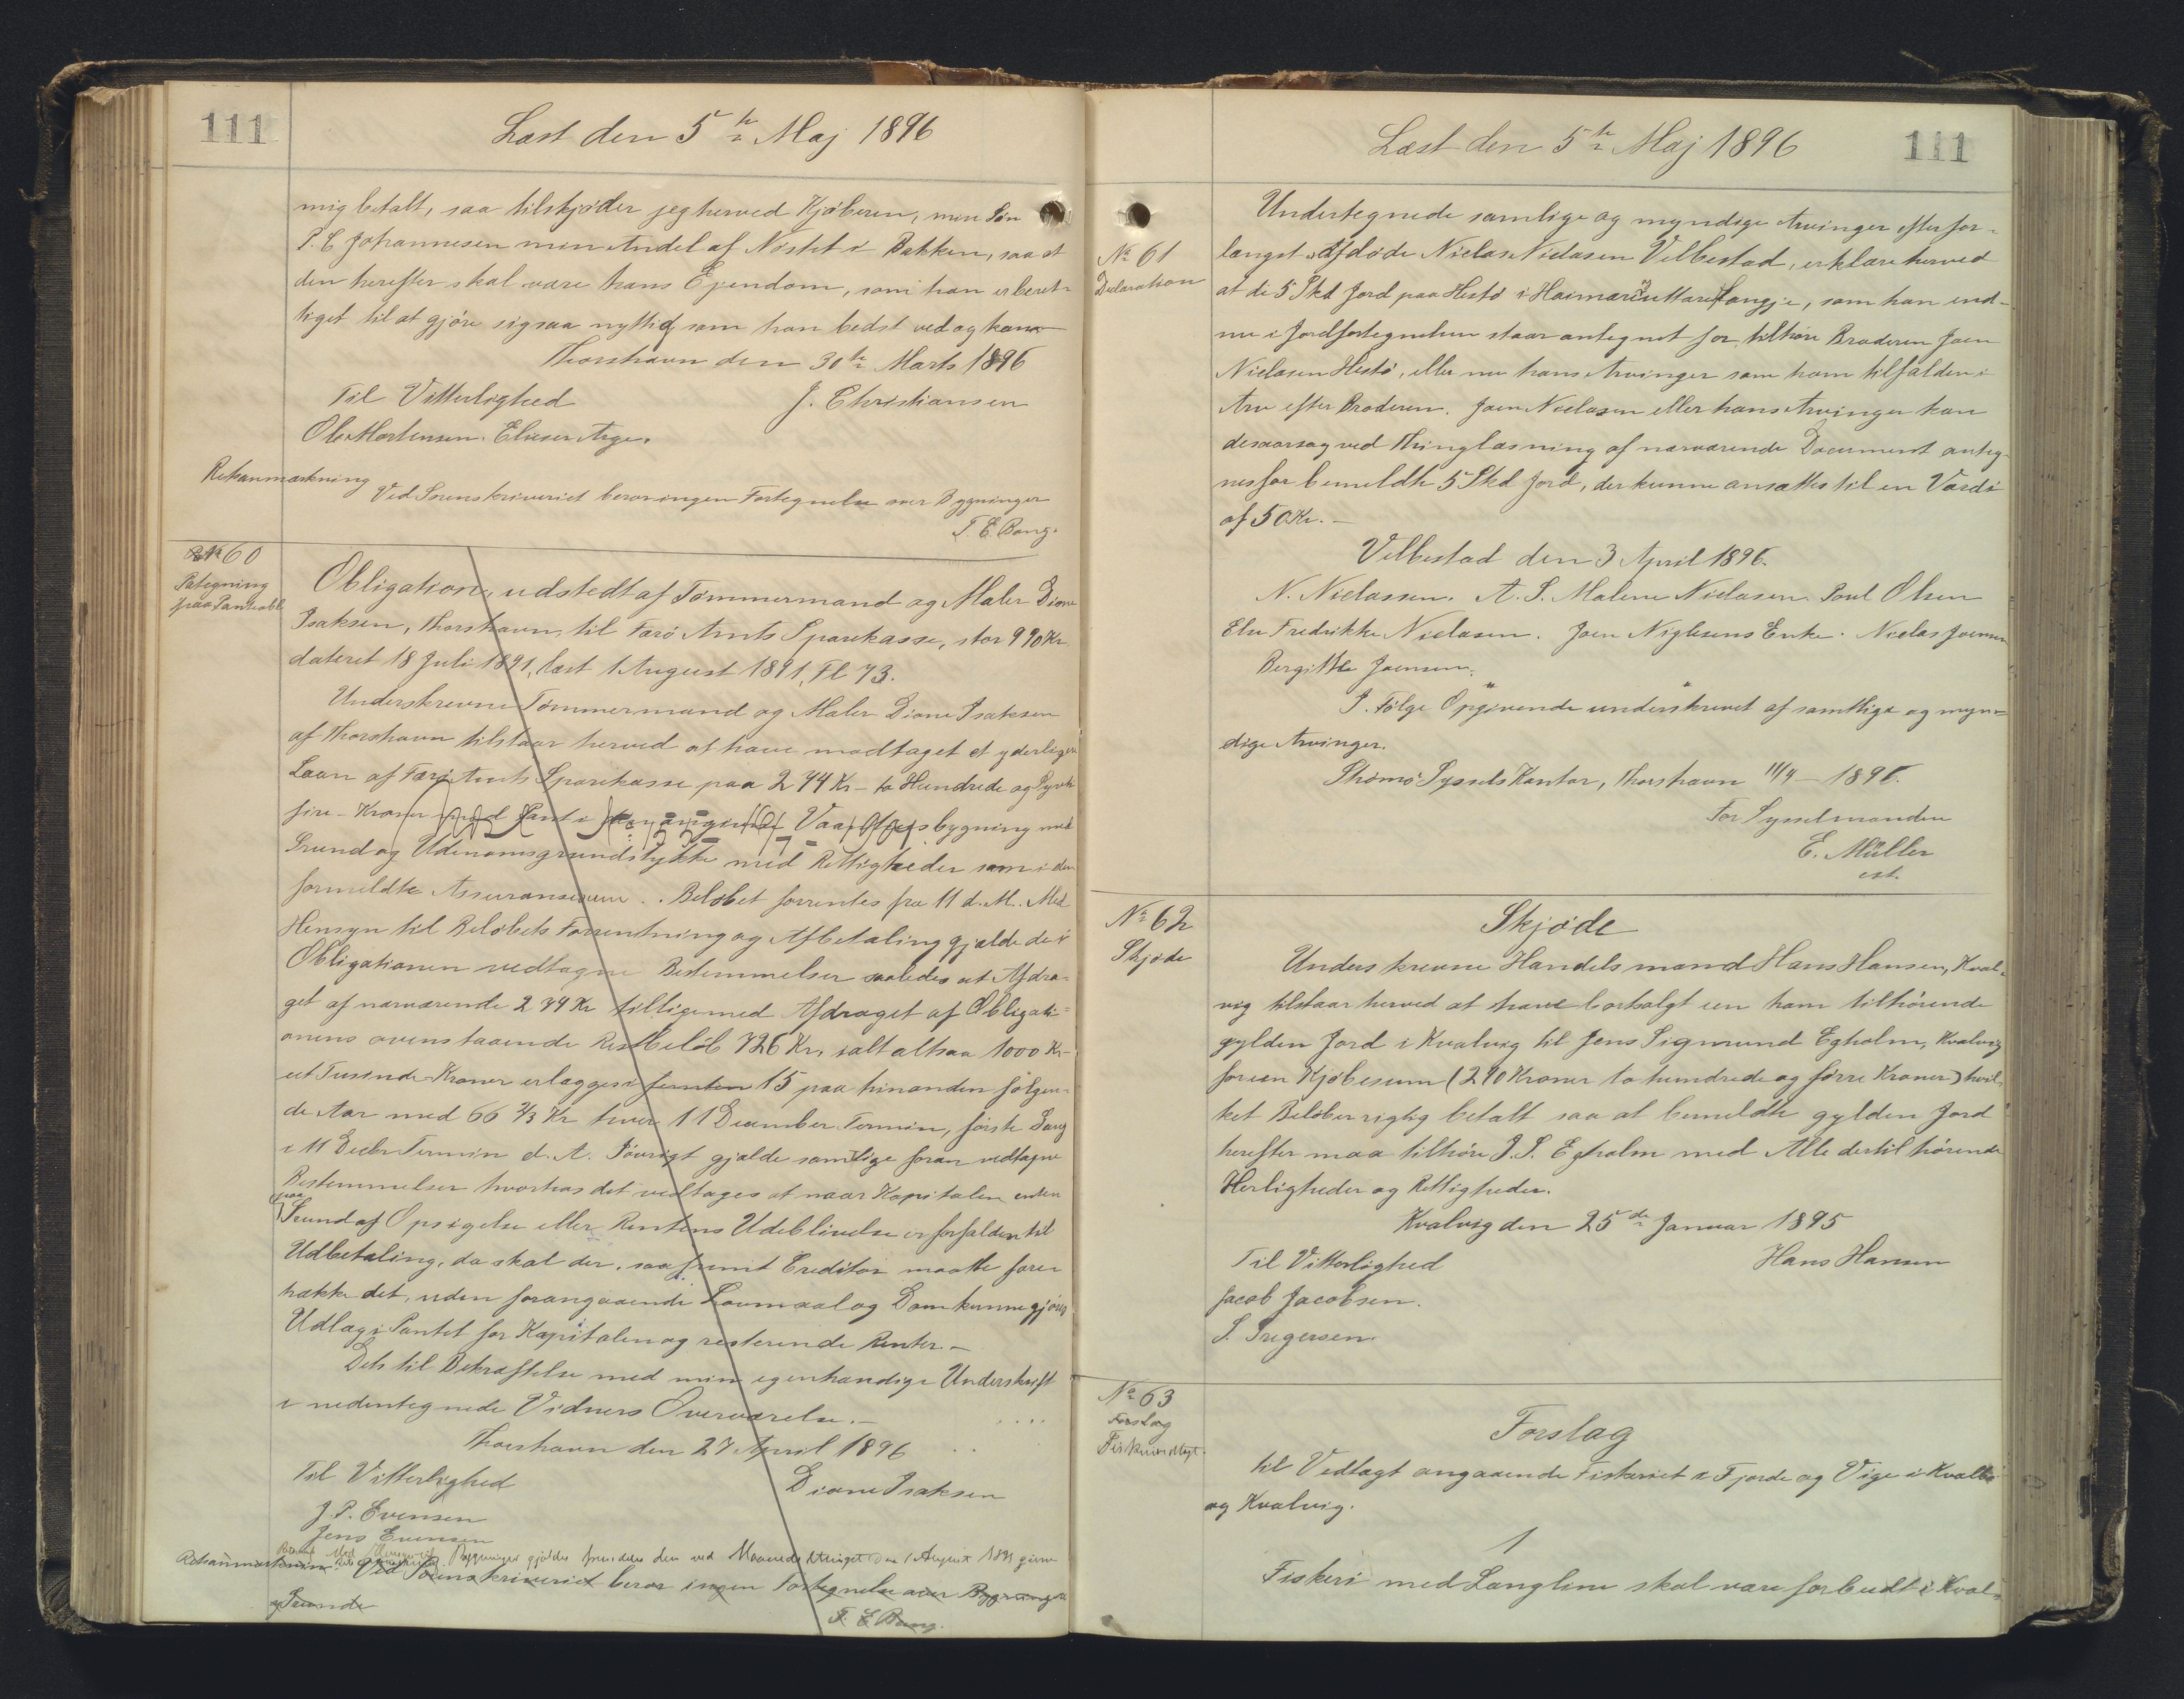 111
Læst den 5te Maj 1896
mig betalt, saa tilskjøder jeg herved Kjøberen, min Søn
P. C Johannesen min Andel af Nøstet i Bakken, saa at
den herefter skal være hans Ejendom, som han er beret-
tiget til at gjøre sig saa nyttig som han bedst ved og kan
Thorshavn den 30te Marts 1896
Til Vitterlighed J. Christiansen
Ole Mortensen. Elieser Arge.
Retanmærkning
Ved Sorenskriveriet beror ingen Fortegnelse over Bygninger
T. E. Bang.
No 60
Pategning
paa Panteobl
Obligation, udstedt af Tømmermand og Maler Dione
Isaksen, Thorshavn, til Færø Amts Sparekasse, stor 990 Kr.
dateret 18 Juli 1891, læst 1 August 1891, Fl 73.
Underskrevne Tømmermand og Maler Dione Isaksen
af Thorshavn tilstaar herved at have modtaget et yderligere
Laan af Færø Amts Sparekasse paa 274 Kr - to Hundrede og Syvti
fire - Kroner mod Pant i Vaaningsbygning med
Grund og Udenomsgrundstykke med Rettigheder som i den
formeldte Assurancesum. Beløbet forrentes fra 11 d. M. Med
Hensyn til Beløbets Forrentning og Afbetaling gjælde de i
Obligationen vedtagne Bestemmelser saaledes at Afdra-
get af nærværende 274 Kr tilligemed Afdraget af Obligati-
onens ovenstaaende Restbeløb 726 Kr, ialt altsaa 1000 Kr-
et Tusinde Kroner erlægges i femten 15 paa hinanden følgen-
de Aar med 66 2/3 Kr hver 11 December Termin, første Gang
i 11 Decbr Termin d. A. Iøvrigt gjælde samtlige foran vedtagne
Bestemmelser hvorhos det vedtages at naar Kapitalen enten
paa
Grund af Opsigelse eller Rentens Udeblivelse er forfalden til
Udbetaling, da skal der, saafremt Creditor maatte fore-
trække det, uden forangaaende Lovmaal og Dom kunne gjøres
Udlæg i Pantet for Kapitalen og resterende Renter. -
Dets til Bekræftelse med min egenhændige Underskrift
i nedentegnede Vidners Overværelse. -
Thorshavn den 27 April 1896
Til Vitterlighed Dione Isaksen
J. P. Evensen
Jens Evensen
Bygninger gjælder fremdeles den ved Maanedstinget den 1 August 1891 givne
Retanmærkning Ved Sorenskriveriet beror ingen Fortegnelse over Bygninger
og Grunde
T. E Bang.
Læst den 5te Maj 1896
111
No 61
Declaration
Undertegnede samlige og myndige Arvinger efter for-
længst Afdøde Niclas Niclasen Velbestad, erklære herved
at de 5 Skd Jord paa Hestø i Haimari Langje, som han end-
nu i Jordfortegnelsen staar antegnet for, tilhøre Broderen Joen
Niclasen Hestø, eller nu hans Arvinger som ham tilfalden i
Arv efter Broderen. Joen Niclasen eller hans Arvinger kan
desaarsag ved Thinglæsning af nærværende Document anteg-
nes for bemeldte 5 Skd Jord, der kunne ansættes til en Værdi
af 50 Kr. -
Velbestad den 3 April 1896.
N. Niclassen. A. S. Malene Niclasen. Poul Olsen
Else Fredrikke Niclasen. Joen Niglesens Enke. Niclas Joensen
Bergitte Joensen.
I Følge Opgivende underskrevet af samtlige og myn-
dige Arvinger.
Strømø Syssels Kontor, Thorshavn 11/4 - 1896.
For Sysselmanden
E. Müller
cst.
No 62
Skjøde
Skjøde
Underskrevne Handelsmand Hans Hansen, Kval-
vig tilstaar herved at have bortsolgt en ham tilhørende
gylden Jord i Kvalvig til Jens Sigmund Egholm, Kvalvig
for een Kjøbesum (240 Kroner to hundrede og førre Kroner) hvil-
ket Beløb er rigtig betalt saa at bemeldte gylden Jord
herefter maa tilhøre J. S. Egholm med Alle dertil hørende
Herligheder og Rettigheder.
Kvalvig den 25de Januar 1895
Til Vitterlighed Hans Hansen
Jacob Jacobsen.
S. Gregersen.
No 63
Forslag
Fiskerivedtægt.
Forslag
til Vedtægt angaaende Fiskeriet i Fjorde og Vige i Kvalbø
og Kvalvig.
1
Fiskeri med Langline skal være forbudt i Kval-